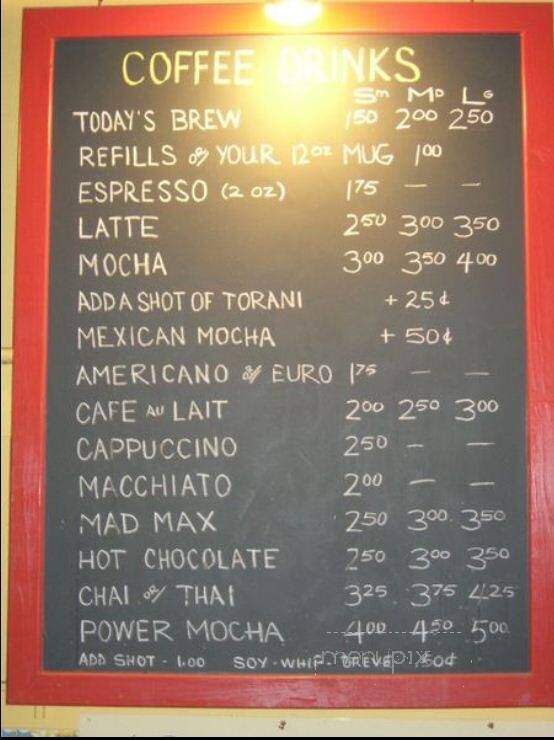 COFFEE DRINKS
Sm MD LG
TODAY'S BREW 150 200 250
REFILLS or YOUR 12oz MUG 100
ESPRESSO (2 OZ) 175 — —
LATTE 250 300 350
MOCHA 300 350 400
ADD A SHOT OF TORANI + 25¢
MEXICAN MOCHA + 50¢
AMERICANO or EURO 175 — —
CAFE AU LAIT 200 250 300
CAPPUCCINO 250 — —
MACCHIATO 200 — —
MAD MAX 250 300 350
HOT CHOCOLATE 250 300 350
CHAI or THAI 325 375 425
POWER MOCHA 400 450 500
ADD SHOT - 1.00 SOY - WHIP - BREVE 50¢
menupix